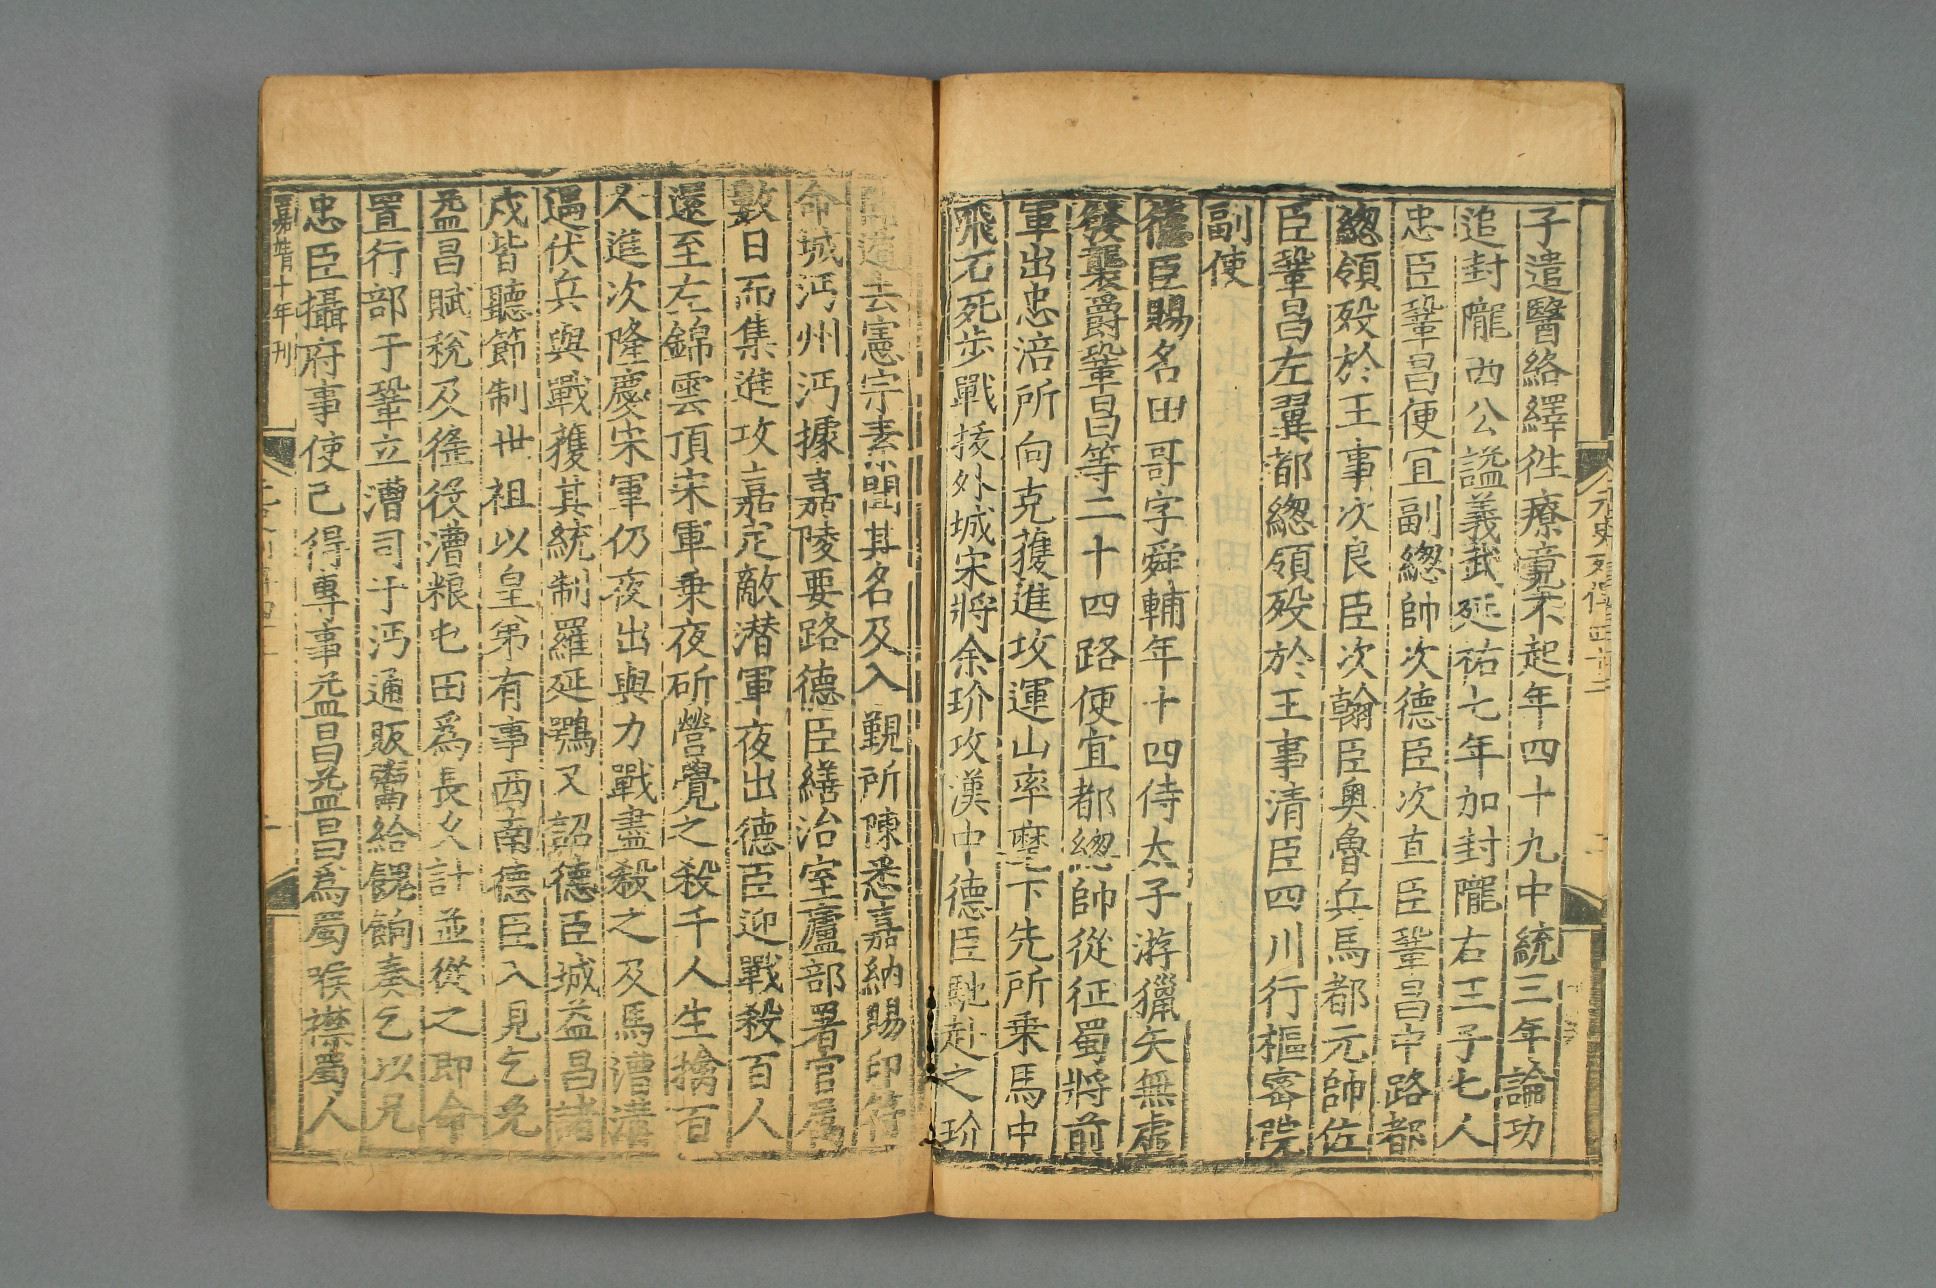 子遣醫絡繹徃療竟不起年四十九中統三年論功
追封隴西公諡義武延祐七年加封隴右王子七人
忠臣鞏昌便宜副緫帥次德臣次直臣鞏昌中路都
緫領殁於王事次良臣次翰臣奥魯兵馬都元帥佐
臣鞏昌左翼都緫領殁於王事清臣四川行樞密院
副使
德臣賜名田哥字舜輔年十四侍太子游獵矢無虚
發襲爵鞏昌等二十四路便宜都緫帥從征蜀將前
軍出忠涪所向克獲進攻運山率麾下先所乗馬中
飛石死步戰拔外城宋將余玠攻漢中德臣馳赴之玠
遁去憲宗素聞其名及入覲所陳悉嘉納賜印符
命城沔州沔據嘉陵要路德臣繕治室廬部署官屬
數日而集進攻嘉定敵潜軍夜出德臣迎戰殺百人
還至左錦雲頂宋軍乗夜斫營覺之殺千人生擒百
人進次隆慶宋軍仍夜出與力戰盡殺之及馬漕溝
逼伏兵與戰獲其統制羅延鶚又詔德臣城益昌諸
戍皆聽節制世祖以皇第有事西南德臣入見乞免
益昌賦税及徭役漕粮屯田爲長久計並從之即命
置行部于鞏立漕司于沔通販鬻給餽餉奏乞以兄
忠臣攝府事使己得專事益昌益昌爲蜀喉襟蜀人
嘉靖十年刊
元史列傳